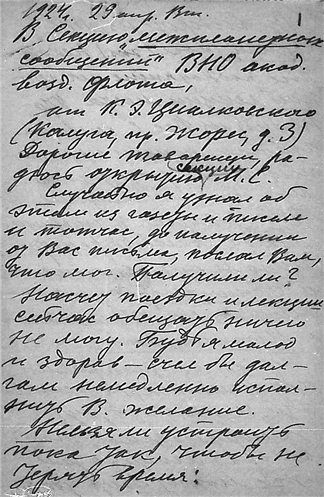 1924г. 29 апр. Вт.
В Секцию „межпланетных
сообщений" ВНО акад.
возд. флота,
от К. Э. Циолковского
(Калуга, пр. Жорес, д. 3)
Дорогие товарищи, ра-
дуюсь открытию секции М. С.
Случайно я узнал об
этом из газеты и писем
и тотчас, до получения
от Вас письма, послал Вам,
что мог. Получили ли?
Насчет поездки и лекции
сейчас обещать ничего
не могу. Будь я молод
и здоров — счел бы дол-
гом немедленно испол-
нить В. желание.
Нельзя ли устроить
пока так, чтобы не
терять время: